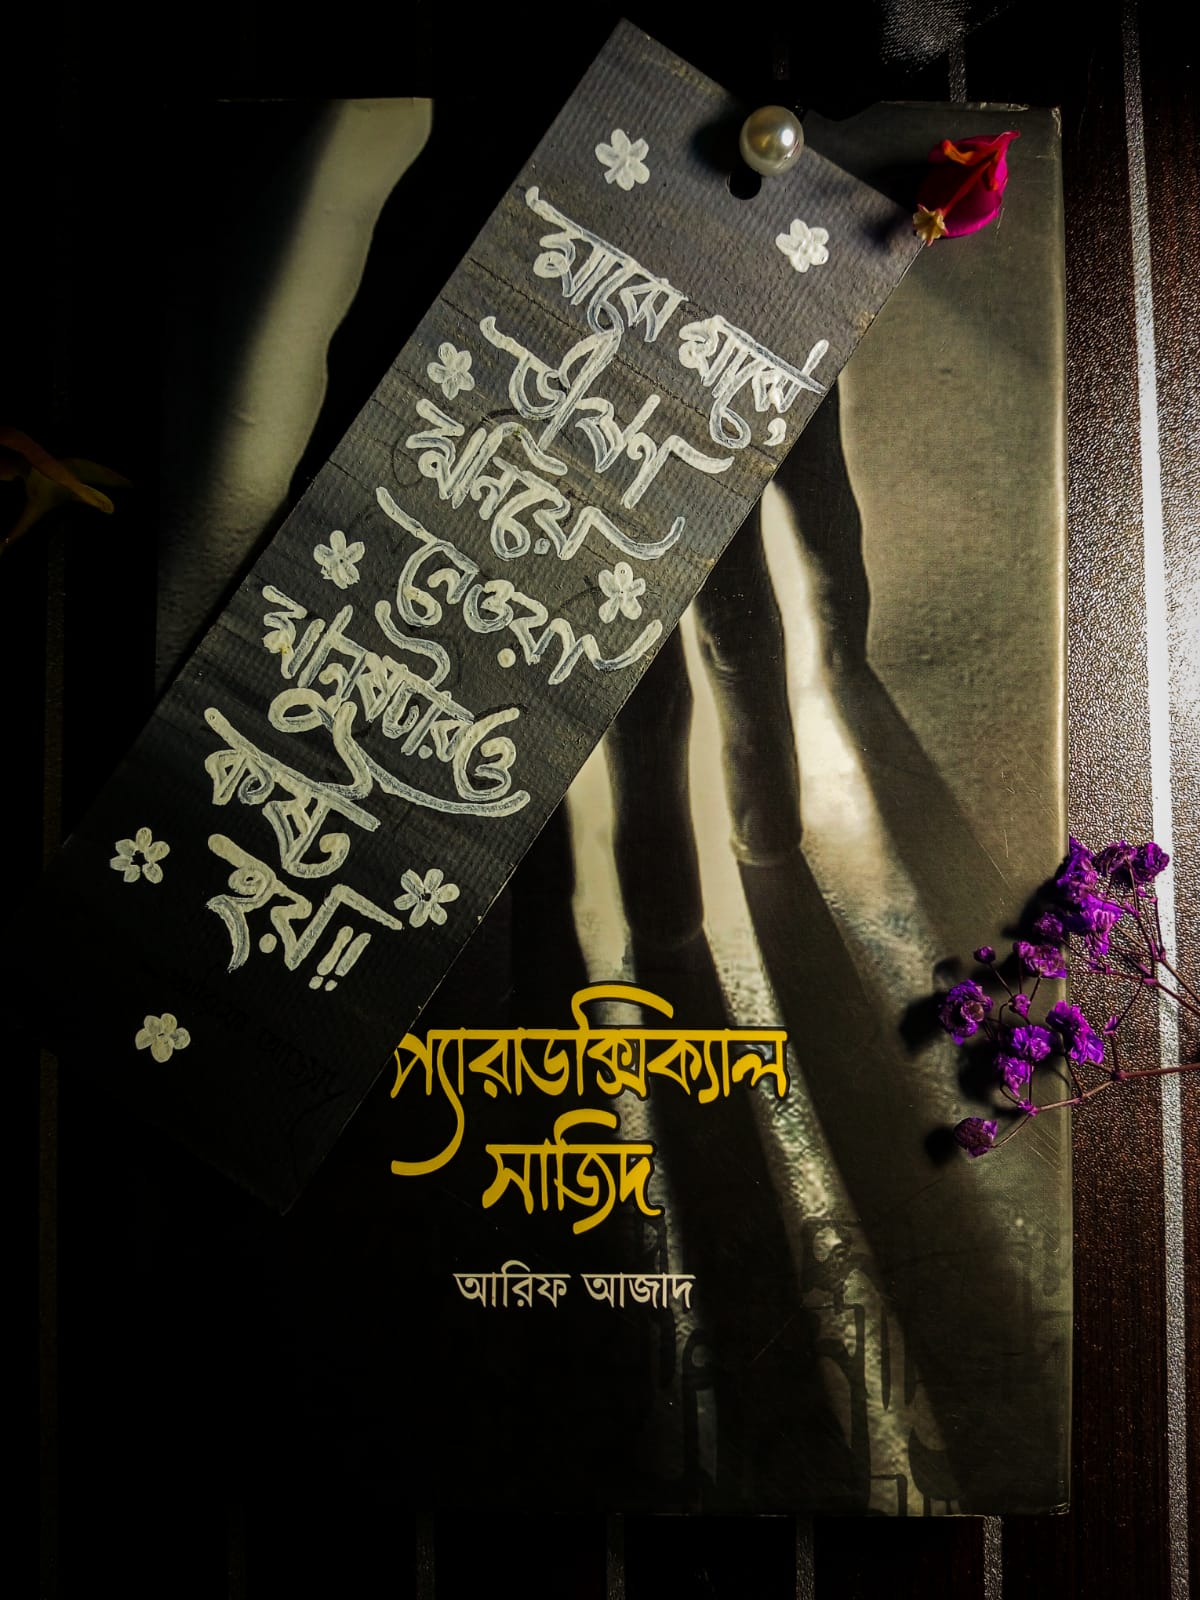 মাঝে মাঝে,
ভীষণ
মানিয়ে
নেওয়া
মানুষটারও
কষ্ট
হয়!!
প্যারাডক্সিক্যাল
সাজিদ
আরিফ আজাদ